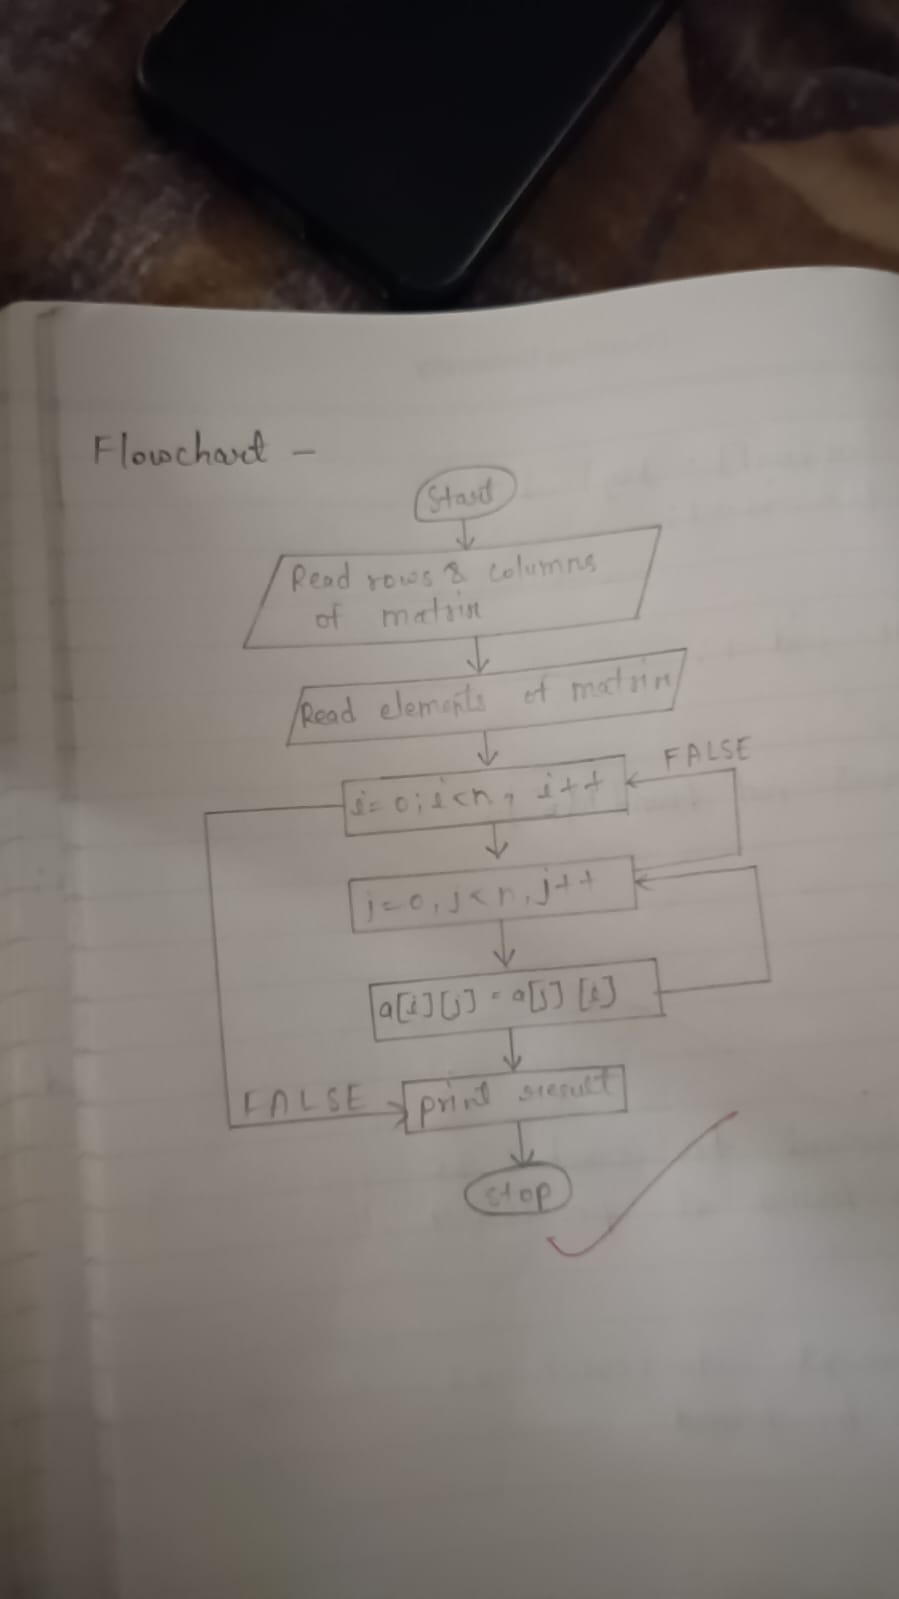 Flowchart -
Start
Read rows & columns
of matrix
Read elements of matrix
FALSE
i=0; i<n, i++
j=0, j<n, j++
a[i][j] = a[j][i]
FALSE
print result
stop